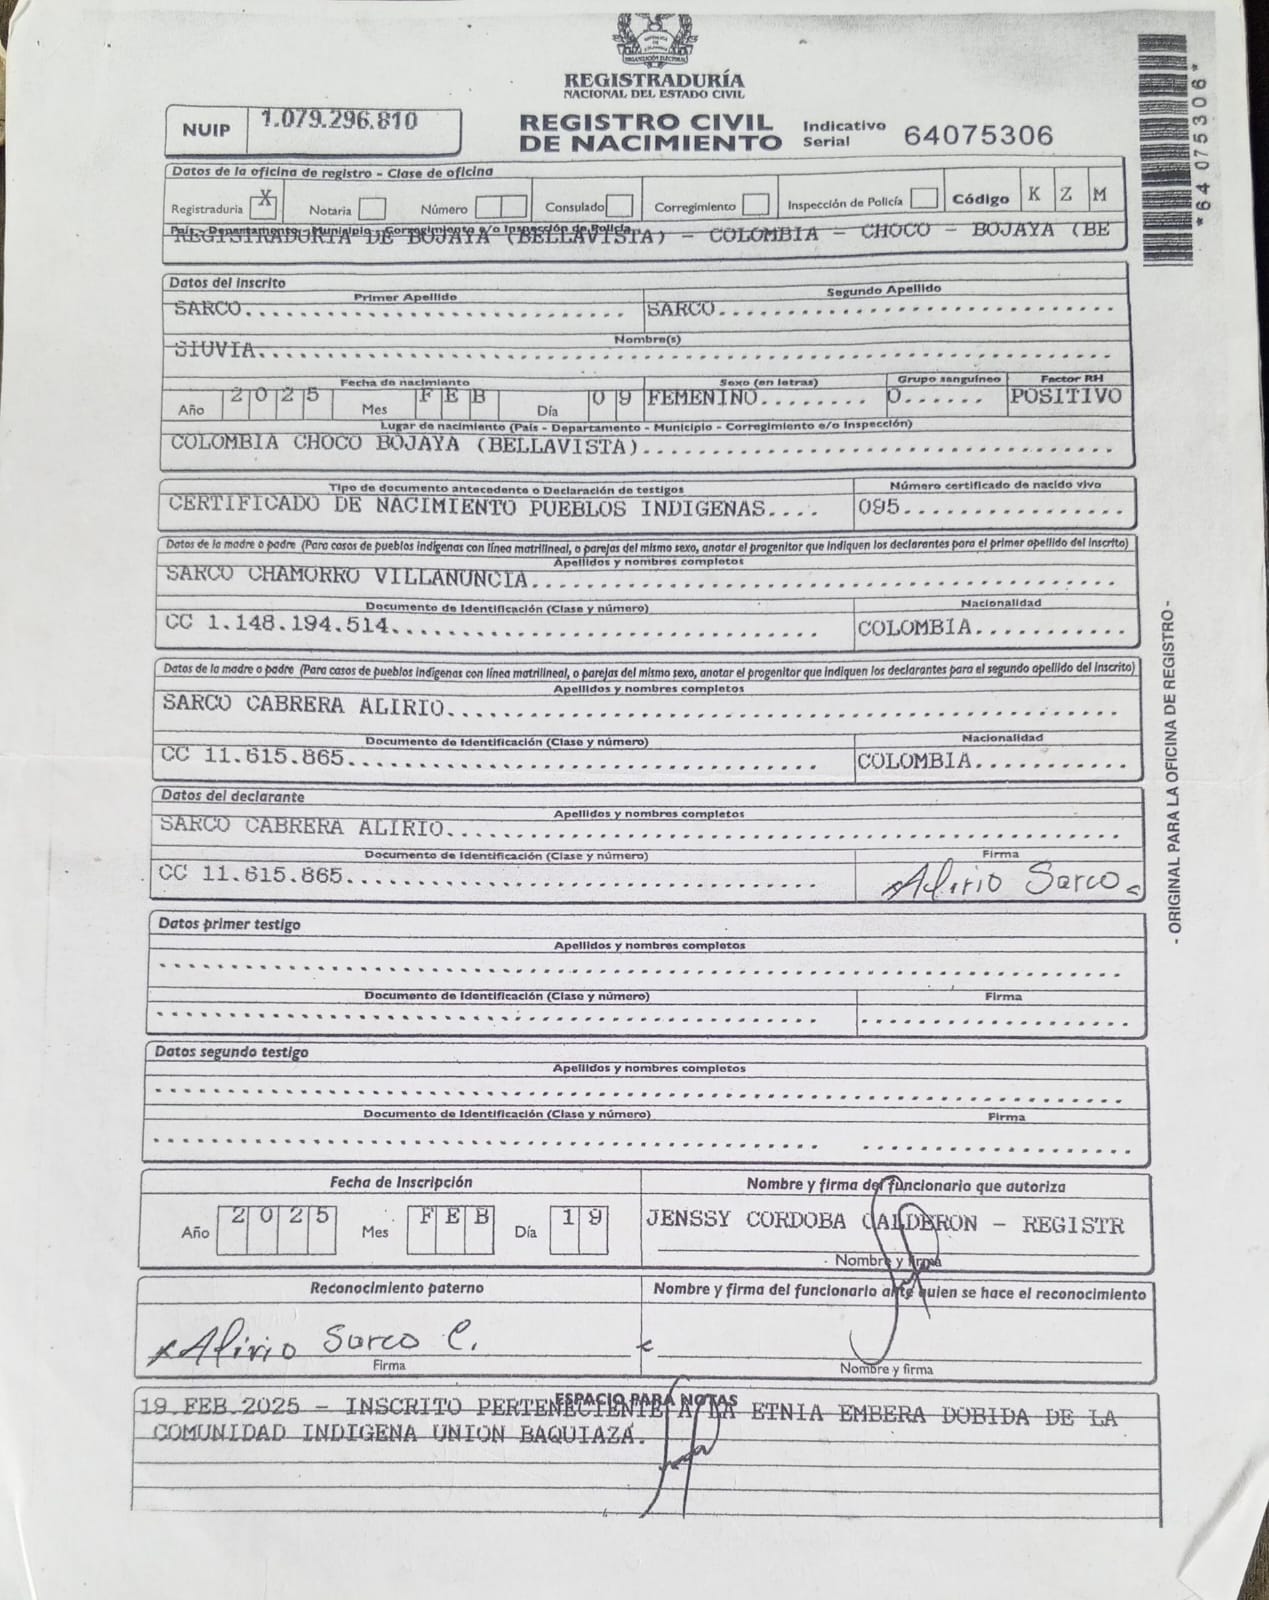 REPUBLICA DE COLOMBIA
ORGANIZACIÓN ELECTORAL
REGISTRADURÍA
NACIONAL DEL ESTADO CIVIL
NUIP 1.079.296.810
REGISTRO CIVIL
DE NACIMIENTO
Indicativo
Serial 64075306
*64075306*
Datos de la oficina de registro - Clase de oficina
Registraduría X Notaría Número Consulado Corregimiento Inspección de Policía Código K Z M
País - Departamento - Municipio - Corregimiento e/o Inspección de Policía
REGISTRADURIA DE BOJAYA (BELLAVISTA) - COLOMBIA - CHOCO - BOJAYA (BE
Datos del inscrito
Primer Apellido Segundo Apellido
SARCO SARCO
Nombre(s)
SIUVIA
Fecha de nacimiento Sexo (en letras) Grupo sanguíneo Factor RH
Año 2025 Mes FEB Día 09 FEMENINO O POSITIVO
Lugar de nacimiento (País - Departamento - Municipio - Corregimiento e/o Inspección)
COLOMBIA CHOCO BOJAYA (BELLAVISTA)
Tipo de documento antecedente o Declaración de testigos Número certificado de nacido vivo
CERTIFICADO DE NACIMIENTO PUEBLOS INDIGENAS 095
Datos de la madre o padre (Para casos de pueblos indígenas con línea matrilineal, o parejas del mismo sexo, anotar el progenitor que indiquen los declarantes para el primer apellido del inscrito)
Apellidos y nombres completos
SARCO CHAMORRO VILLANUNCIA
Documento de Identificación (Clase y número) Nacionalidad
CC 1.148.194.514 COLOMBIA
Datos de la madre o padre (Para casos de pueblos indígenas con línea matrilineal, o parejas del mismo sexo, anotar el progenitor que indiquen los declarantes para el segundo apellido del inscrito)
Apellidos y nombres completos
SARCO CABRERA ALIRIO
Documento de Identificación (Clase y número) Nacionalidad
CC 11.615.865 COLOMBIA
Datos del declarante
Apellidos y nombres completos
SARCO CABRERA ALIRIO
Documento de Identificación (Clase y número) Firma
CC 11.615.865 Alirio Sarco c
Datos primer testigo
Apellidos y nombres completos
Documento de Identificación (Clase y número) Firma
Datos segundo testigo
Apellidos y nombres completos
Documento de Identificación (Clase y número) Firma
Fecha de Inscripción Nombre y firma del funcionario que autoriza
Año 2025 Mes FEB Día 19 JENSSY CORDOBA CALDERON - REGISTR
Nombre y firma
Reconocimiento paterno Nombre y firma del funcionario ante quien se hace el reconocimiento
Alirio Sarco C.
Firma Nombre y firma
ESPACIO PARA NOTAS
19.FEB.2025 - INSCRITO PERTENECIENTE A LA ETNIA EMBERA DOBIDA DE LA
COMUNIDAD INDIGENA UNION BAQUIAZA.
- ORIGINAL PARA LA OFICINA DE REGISTRO -